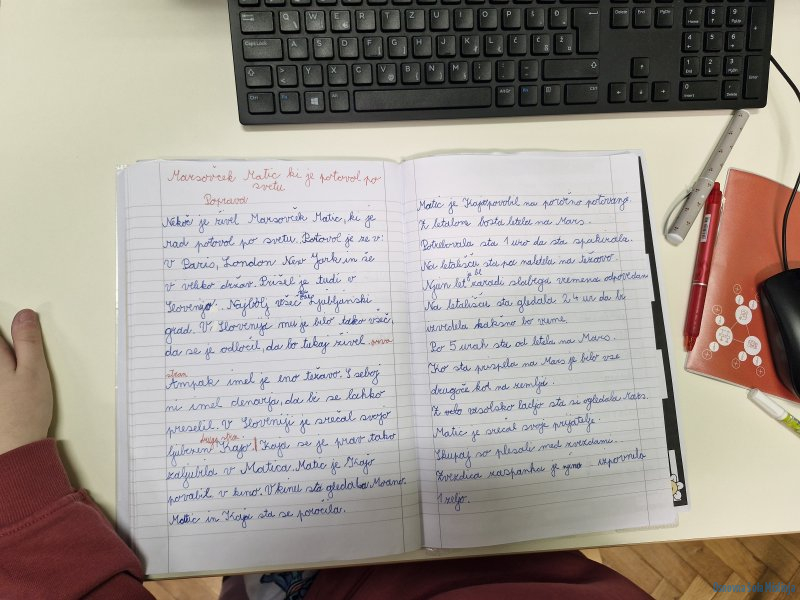 Marsovček Matic ki je potovol po
svetu
Poprava
Nekoč je živel Marsovček Matic, ki je
rad potovol po svetu. Potoval je že v:
v Paris, London New York in še
v veliko držav. Prišel je tudi v
Slovenijo. Najbolj všeč mu Ljubljanski
grad. V Sloveniji mu je bilo tako všeč,
da se je odločil, da bo tukaj živel. prva
stran
Ampak imel je eno težavo. S seboj
ni imel denarja, da bi se lahko
preselil. V Sloveniji je srečal svojo
ljubezen Kajo. Kaja se je prav tako
druga stran
zaljubila v Matica. Matic je Kajo
povabil v kino. V kinu sta gledala Moano.
Matic in Kaja sta se poročila.
Matic je Kajo povobil na poročno potovanje.
Z letalom bosta letela na Mars.
Potrebovala sta 1 uro da sta spakirala.
Na letališču sta pa naletela na težavo.
Njun let je bil zaradi slabega vremena odpovedan
Na letališču sta gledala 24 ur da bi
izvedela kakšno bo vreme.
Po 5 urah sta od letela na Mars.
Ko sta prispela na Mars je bilo vse
drugače kot na zemlji.
Z vesoljsko ladjo sta si ogledala Mars.
Matic je srečal svoje prijatelje.
Skupaj so plesali med zvezdami.
Zvezdica zaspanka je izpovnela
1 željo.